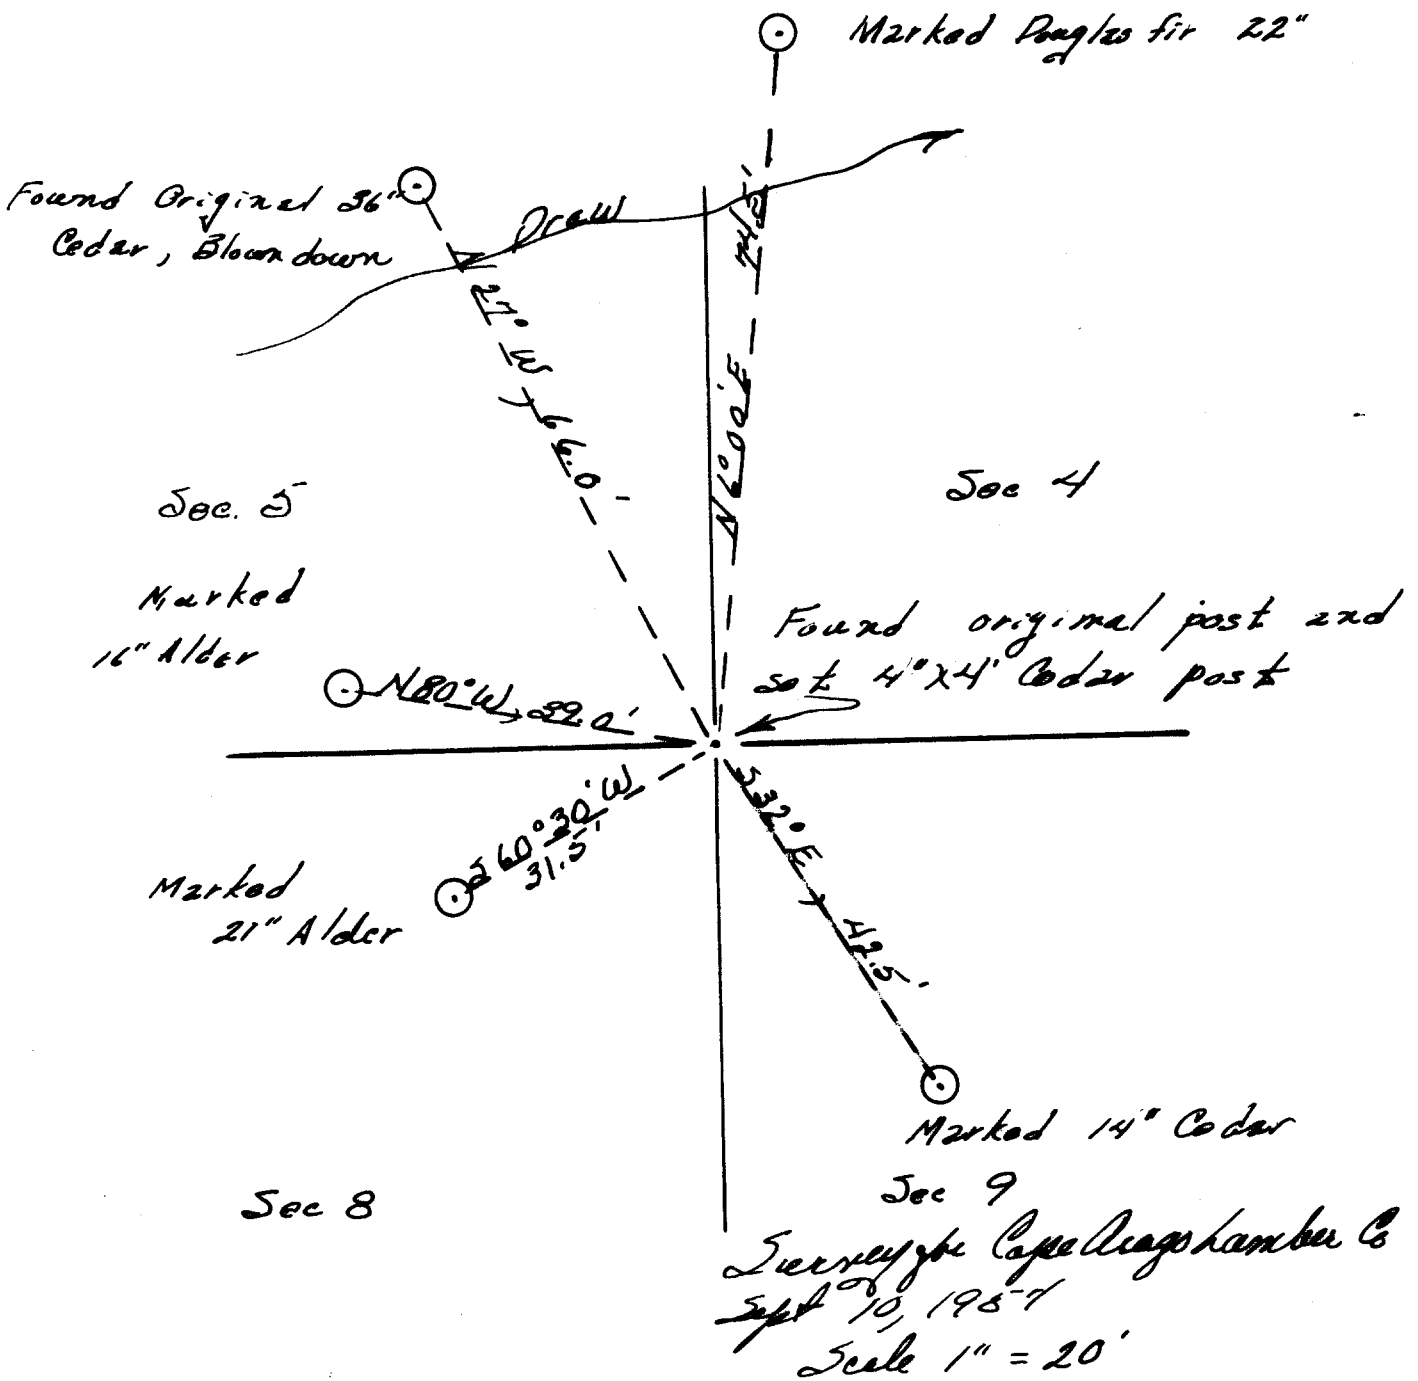 Marked Douglas fir 22"
Found Original 36"
Cedar, Blown down
Draw
N 27° W, 66.0'
N 6° 00' E 74.5'
Sec. 5
Sec 4
Marked
16" Alder
Found original post and
set 4"X4" Cedar post
N 80° W, 39.0'
S 60° 30' W
31.5'
S 32° E, 42.5'
Marked
21" Alder
Marked 14" Cedar
Sec 8
Sec 9
Survey for Cape Arago Lumber Co
Sept 10, 1957
Scale 1" = 20'